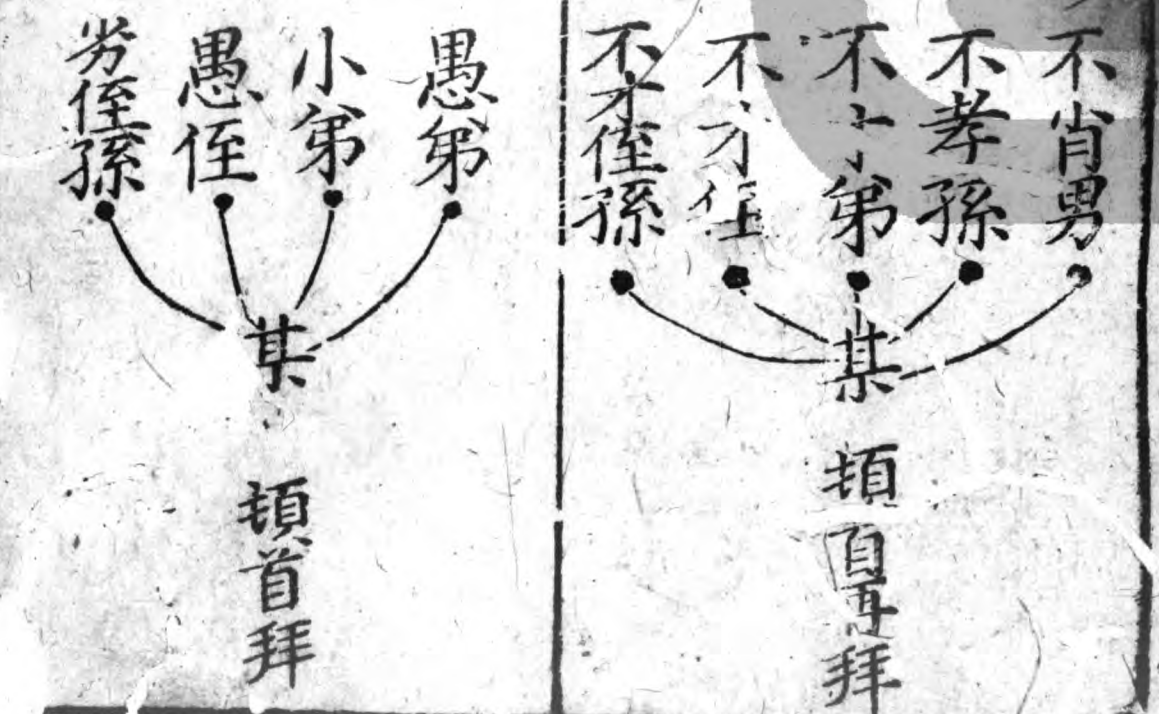 不肖男
不孝孫
不才小弟
不才侄
不才侄孫
某
頓首再拜
愚弟
小弟
愚侄
劣侄孫
某
頓首拜